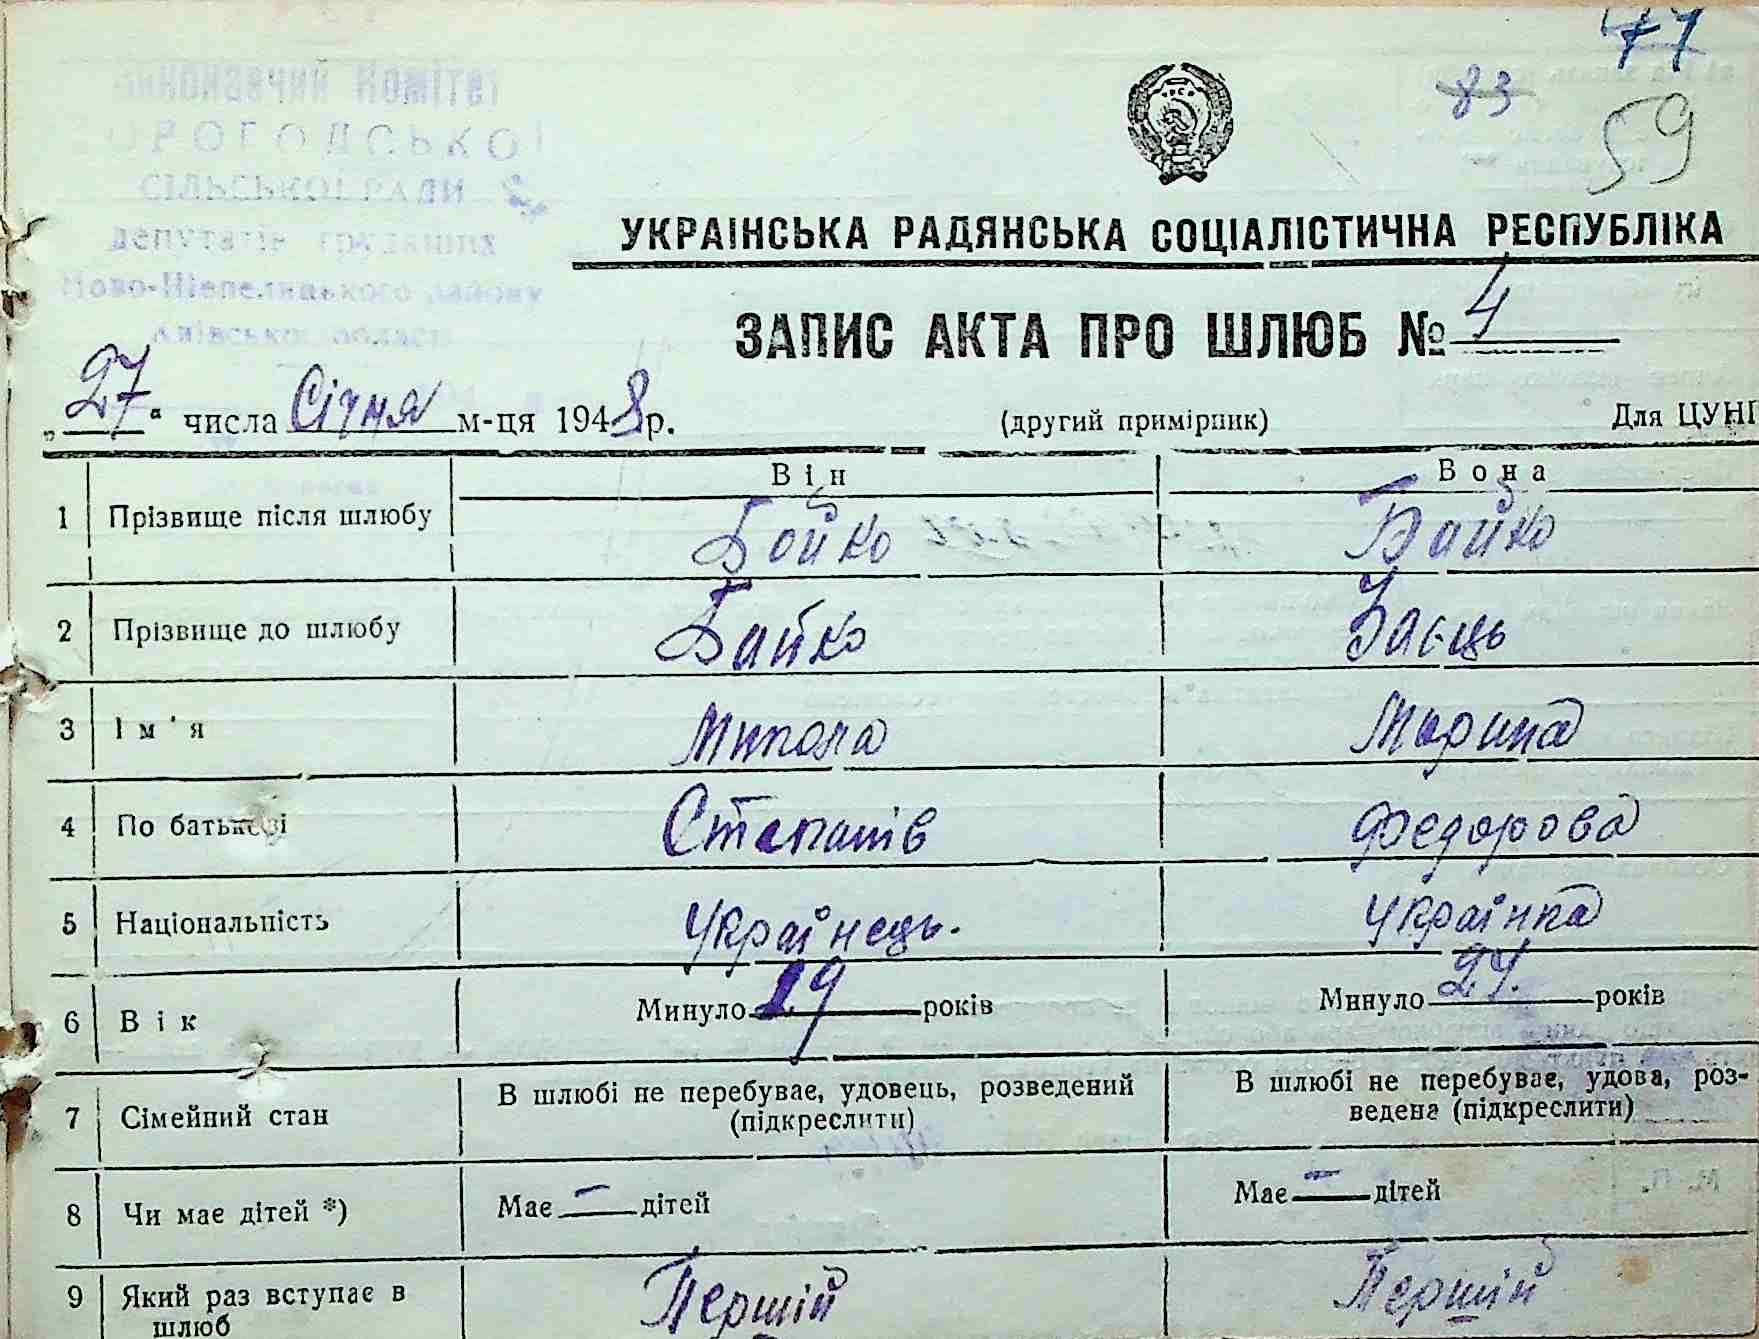 71
83
59
Виконавчий Комітет
СІЛЬСЬКОЇ РАДИ
депутатів трудящих
Ново-Шепелицького району
Київської області
УКРАЇНСЬКА РАДЯНСЬКА СОЦІАЛІСТИЧНА РЕСПУБЛІКА
ЗАПИС АКТА ПРО ШЛЮБ № 4
„27“ числа Січня м-ця 1948 р.
(другий примірник)
Для ЦУНГ
Він
Вона
1 Прізвище після шлюбу Бойко Бойко
2 Прізвище до шлюбу Бойко Заєць
3 Ім'я Микола Марина
4 По батькові Степанів Федорова
5 Національність Українець. Українка
6 Вік Минуло 19 років Минуло 24. років
7 Сімейний стан
В шлюбі не перебуває, удовець, розведений
(підкреслити)
В шлюбі не перебуває, удова, роз-
ведена (підкреслити)
8 Чи має дітей *) Має — дітей Має — дітей
9 Який раз вступає в
шлюб
Першій Першій